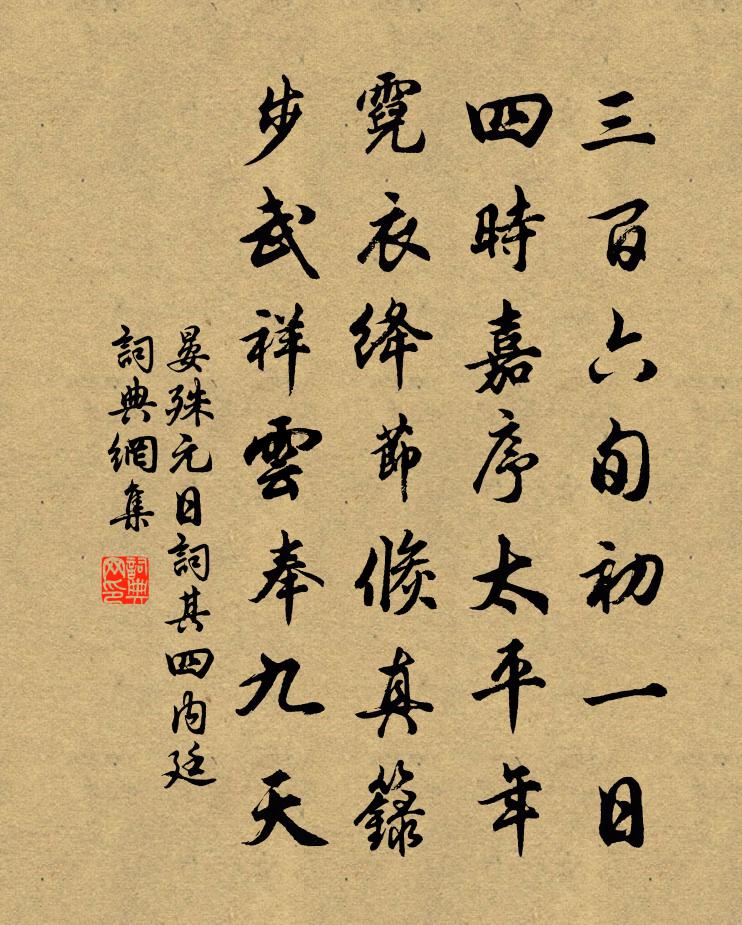 三百六旬初一日
四時嘉序太平年
霓衣絳節倏真籙
步武祥雲奉九天
晏殊元日詞其四內廷
詞典網集
詞典網印